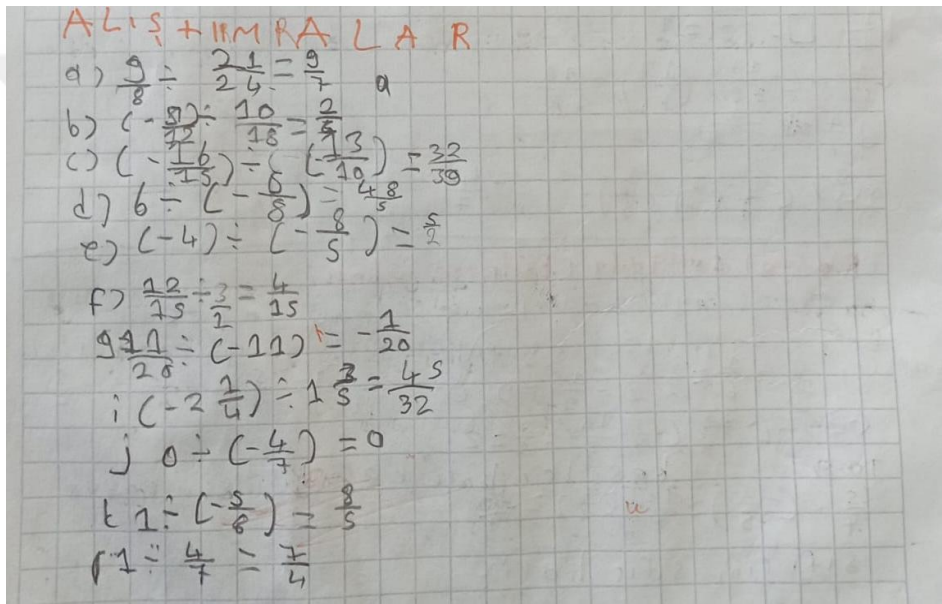 ALIŞTIRMALAR
a) 9/8 ÷ 21/24 = 9/7 a
b) (-8/12) ÷ 10/18 = 2/5
c) (-16/15) ÷ (-13/10) = 32/39
d) 6 ÷ (-5/8) = 48/5
e) (-4) ÷ (-8/5) = 5/2
f) 12/15 ÷ 3/1 = 4/15
g 11/20 ÷ (-11) = -1/20
i (-2 1/4) ÷ 1 3/5 = 45/32
j 0 ÷ (-4/7) = 0
k 1 ÷ (-5/8) = 8/5
r 1 ÷ 4/7 = 7/4